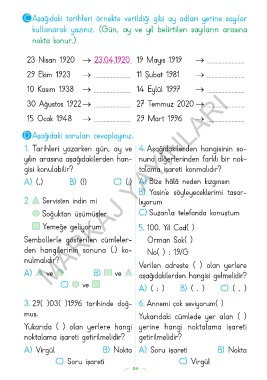 C Aşağıdaki tarihleri örnekte verildiği gibi ay adları yerine sayılar
kullanarak yazınız. (Gün, ay ve yıl belirtilen sayıların arasına
nokta konur.)
23 Nisan 1920 → 23.04.1920
29 Ekim 1923 → ..................
10 Kasım 1938 → ..................
30 Ağustos 1922 → ..................
15 Ocak 1948 → ..................
19 Mayıs 1919 → ..................
11 Şubat 1981 → ..................
14 Eylül 1997 → ..................
27 Temmuz 2020 → ..................
29 Mart 1996 → ..................
D Aşağıdaki soruları cevaplayınız.
1. Tarihleri yazarken gün, ay ve
yılın arasına aşağıdakilerden han-
gisi konulabilir?
A) (,) B) (!) C) (.)
2. Servisten indin mi
Soğuktan üşümüşler
Yemeğe geliyorum
Sembollerle gösterilen cümleler-
den hangilerinin sonuna (.) ko-
nulmalıdır?
A) ve B) ve
C) ve
3. 29( )03( )1996 tarihinde doğ-
muş.
Yukarıda ( ) olan yerlere hangi
noktalama işareti getirilmelidir?
A) Virgül B) Nokta
C) Soru işareti
4. Aşağıdakilerden hangisinin so-
nuna diğerlerinden farklı bir nok-
talama işareti konmalıdır?
A) Bize hâlâ neden kızgınsın
B) Yasin'e söyleyeceklerimi tasar-
lıyorum
C) Suzan'la telefonda konuştum
5. 100. Yıl Cad( )
Orman Sok( )
No( ) : 19/G
Verilen adreste ( ) olan yerlere
aşağıdakilerden hangisi gelmelidir?
A) ( : ) B) ( . ) C) ( , )
6. Annemi çok seviyorum( )
Yukarıdaki cümlede yer alan ( )
yerine hangi noktalama işareti
getirilmelidir?
A) Soru işareti B) Nokta
C) Virgül